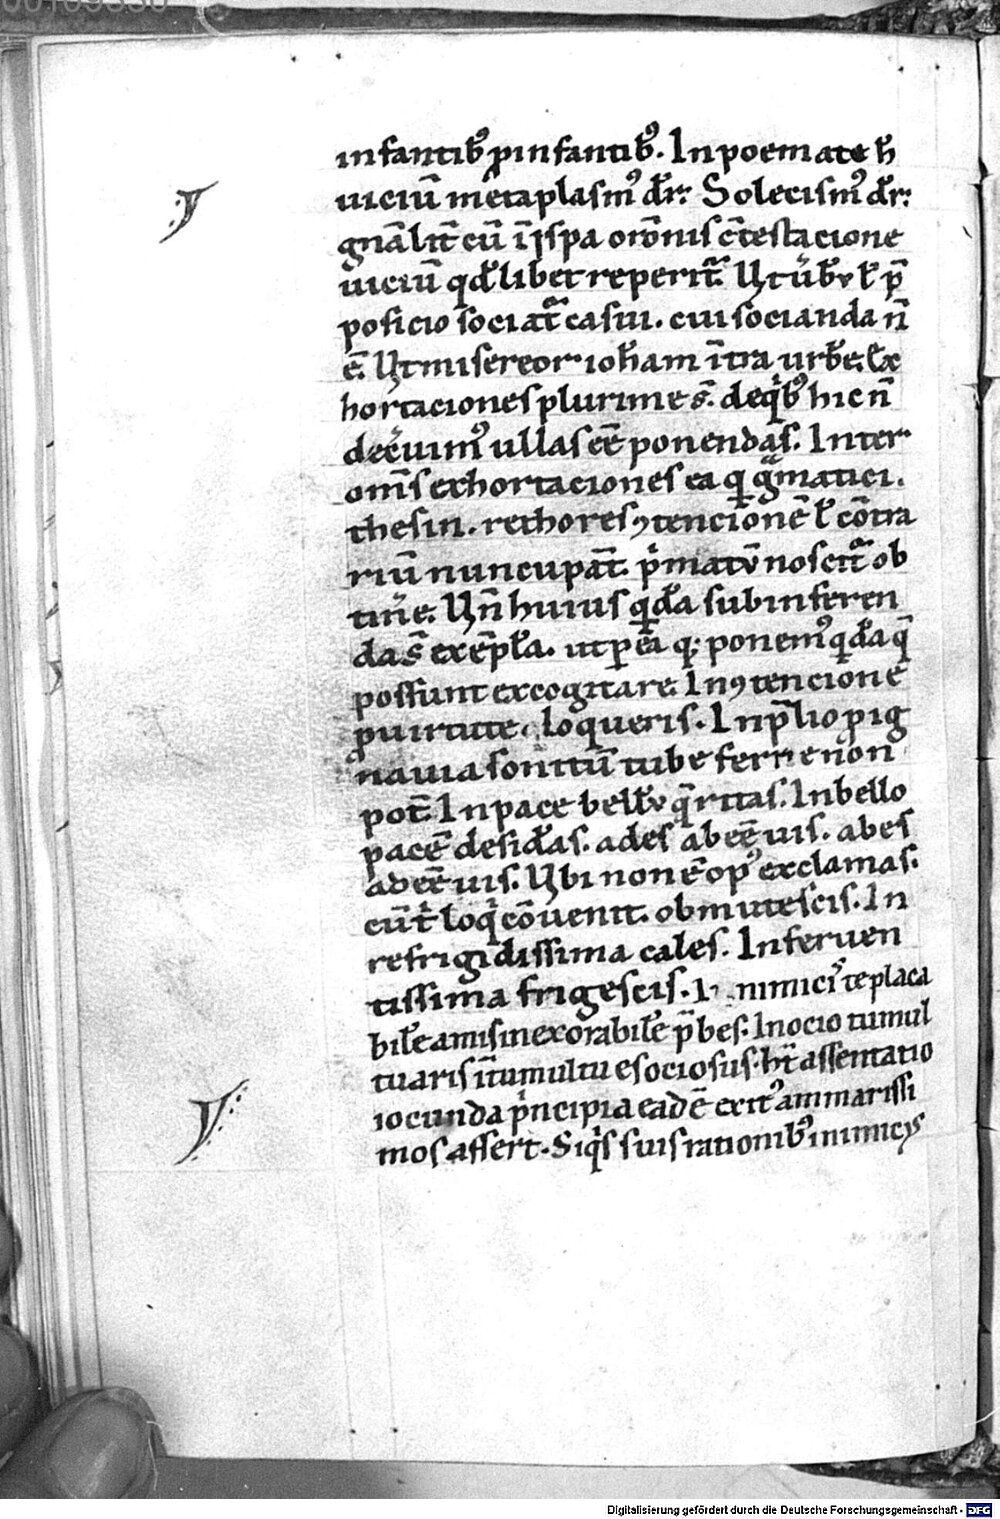 infantib᷒ ꝓ infantib᷒. In poemate h̄
uiciū metaplasm᷒ dr̄. Solecism᷒ dr̄.
gnāl̄it̄ cū īispa orōnis c̄testacione
uiciū qd̄libet reperit̄. Ut ūb̄ꝉ p̄
posicio sociat̄ casui. cui socianda n̄
ē. Ut misereor ioh̄am īt̄ra urbē. Ex
hortaciones plurime s̄. de qib᷒ hic n̄
decuim᷒ ullas eē ponendas. Inter
om̄s exhortaciones ea q̄ gmatici.
thesin. rethores ꝯtencionē ꝉ cōtra
riū nuncupāt. pͥmatū noscit̄ ob
tinē. Un̄ huius qd̄a subinferen
da s̄ exēpla. ut p eā q; ponem᷒ qd̄a q̄
possunt excogitare. In ꝯtencione
ꝓ uirtute loqueris. In p̄lio ꝓ ig
nauia sonitū tube ferre non
pot̄. In pace bellū q̄ritas. In bello
pacē desid̄as. ades abeē uis. abes
adeē uis. Ubi non ē op᷒ exclamas.
cū t̄ loqi cōuenit. obmutescis. In
refrigidissima cales. In feruen
tissima frigescis. In inimicis te placa
bilē amis inexorabilē p̄bes. In ocio tumul
tuaris ī tumultu es ociosus. h̄t assentatio
iocunda pͥncipia eadē exit᷒ ammarissi
mos affert. Siqͥs suis rationib᷒ inimicꝯs